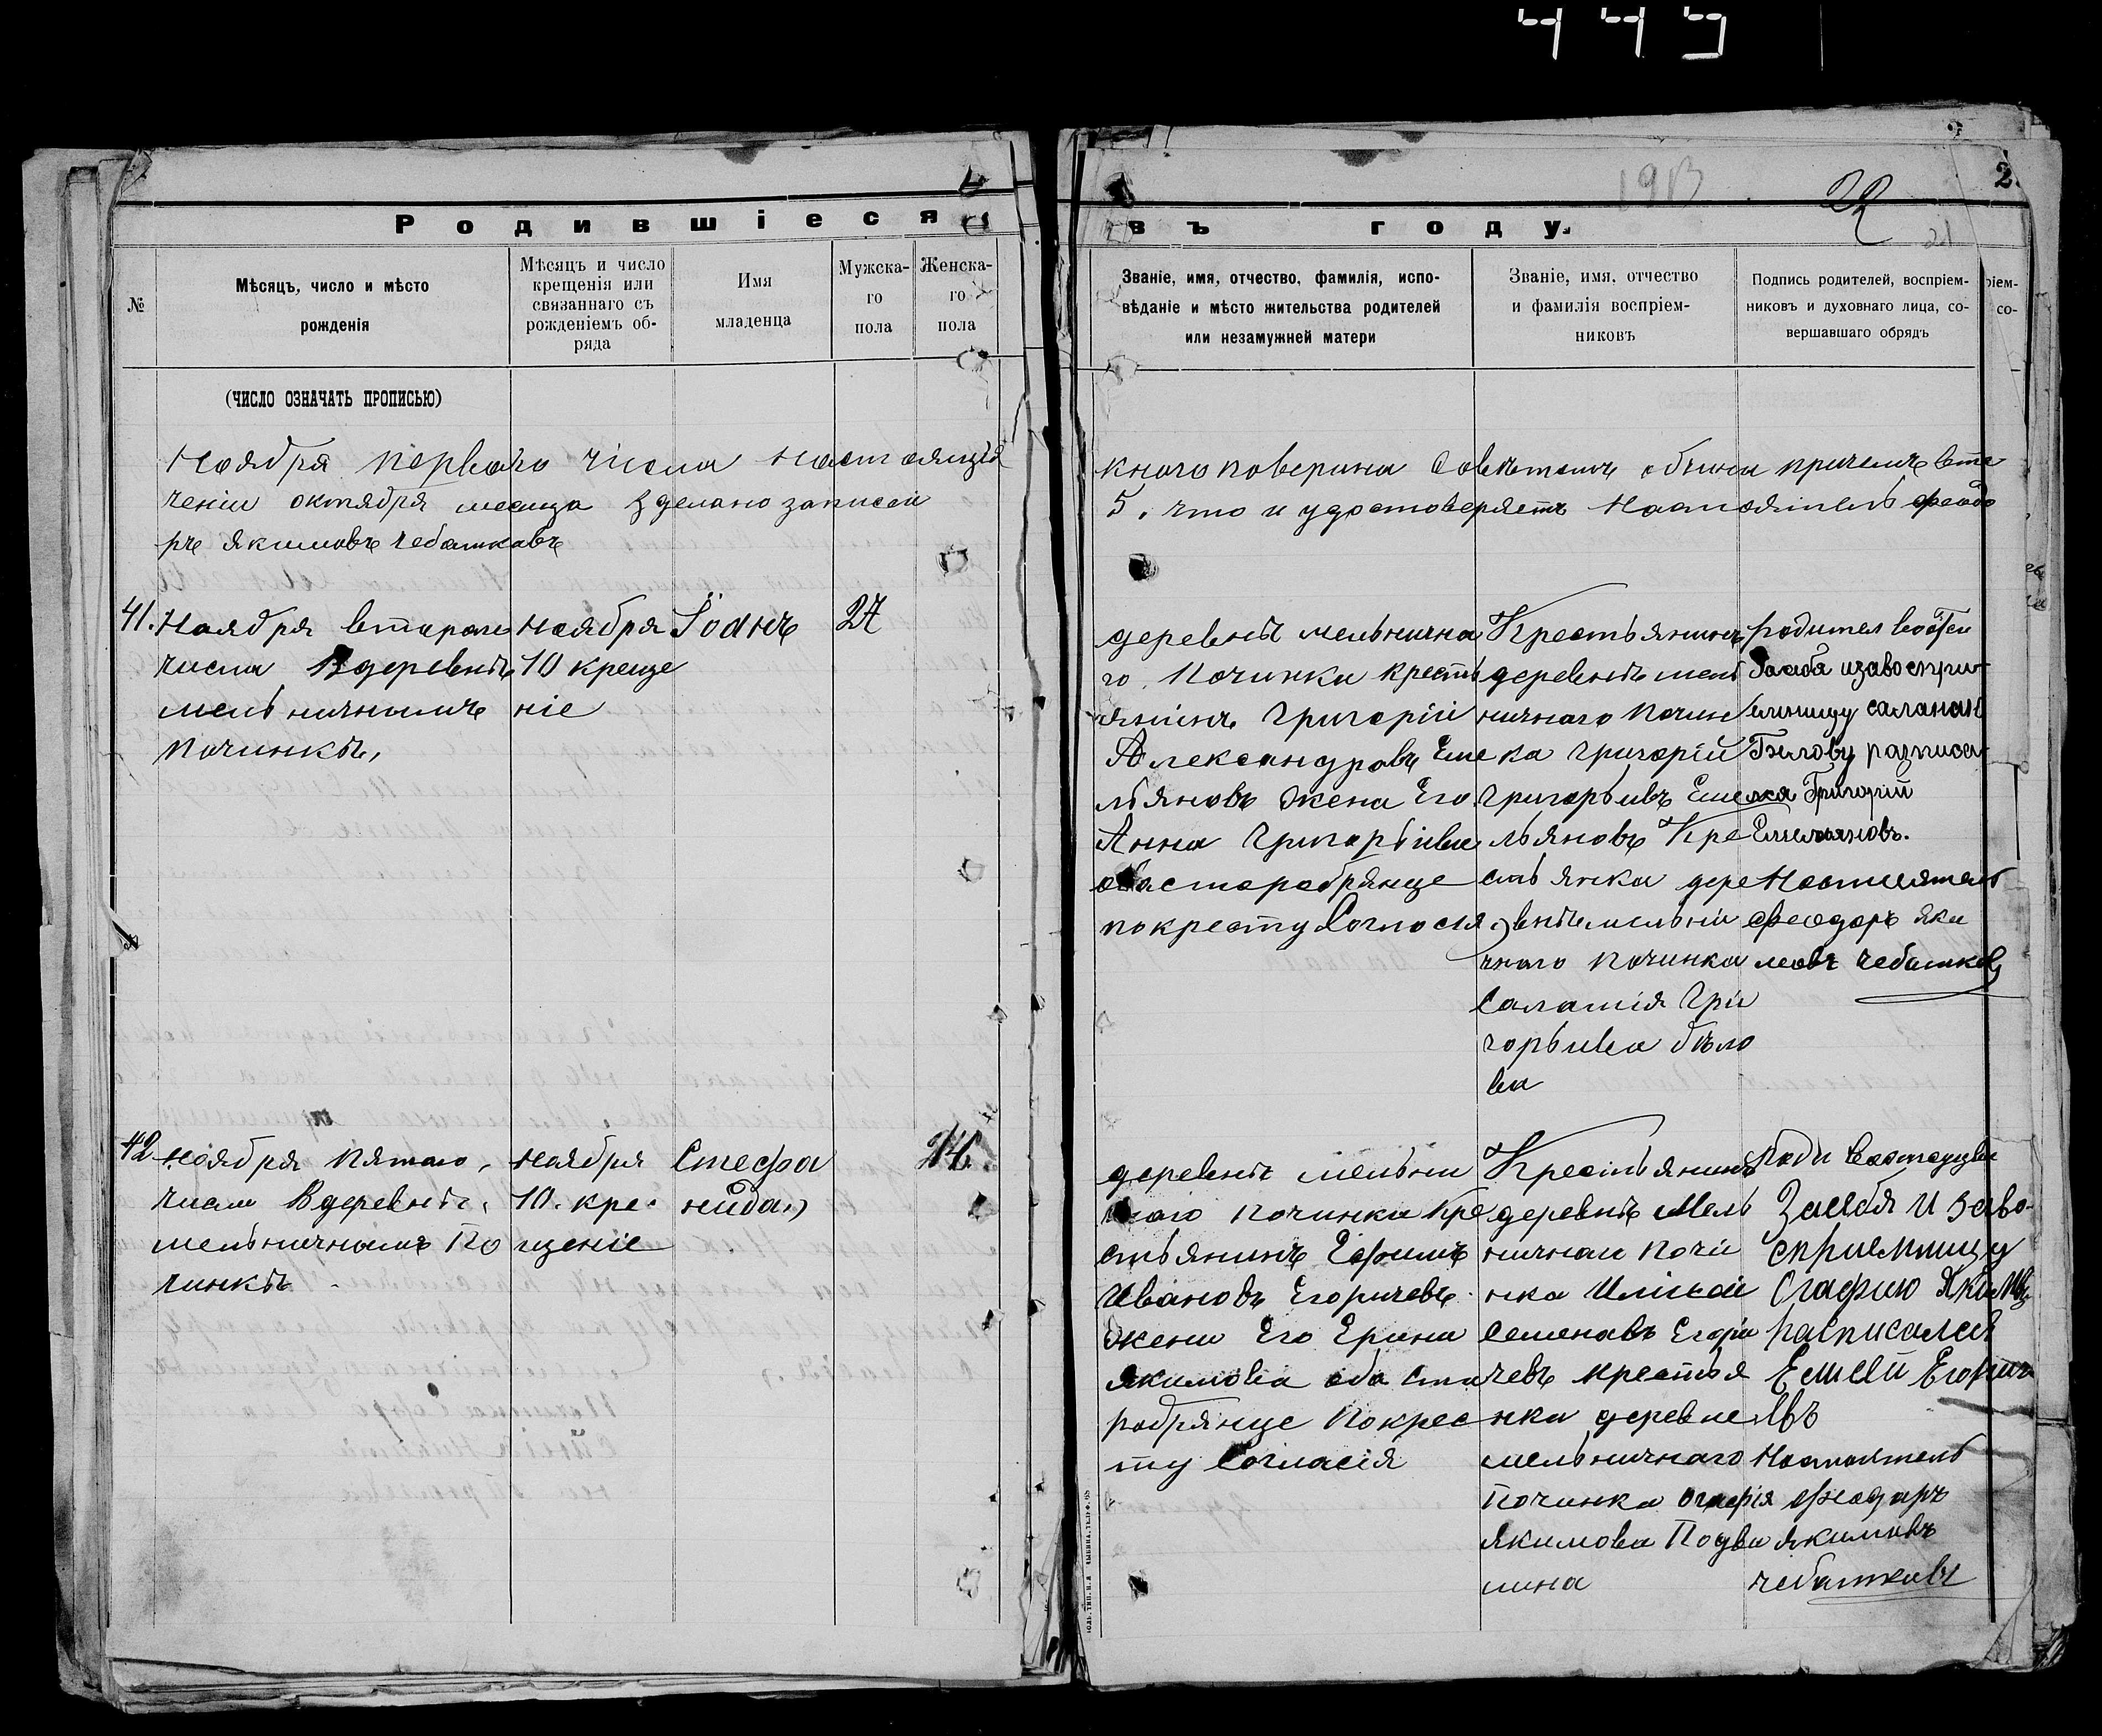 449
1913
22
21
2.
Родившіеся
въ году.
№
Мѣсяцъ, число и мѣсто
рожденія
Мѣсяцъ и число
крещенія или
связаннаго съ
рожденіемъ об-
ряда
Имя
младенца
Мужска-
го
пола
Женска-
го
пола
Званіе, имя, отчество, фамилія, испо-
вѣданіе и мѣсто жительства родителей
или незамужней матери
Званіе, имя, отчество
и фамилія воспріем-
никовъ
Подпись родителей, воспріем-
никовъ и духовнаго лица, со-
вершавшаго обрядъ
ріем-
со-
(ЧИСЛО ОЗНАЧАТЬ ПРОПИСЬЮ)
Ноября перваго числа настоящія
кного поверина причемъ вте
ченіи октября месяца зделано записей
5. что и удостоверяетъ Настоятель феодо
ръ якимовъ чебатковъ
41.
Ноября втораго
числа вдеревнѣ
мельничнымъ
починкѣ,
ноября
10 креще
ніе
Іоанъ
27
деревнѣ мельнична
го починки кресть
янинъ Григорій
Александровъ Еме
льяновъ жена Его
Анна Григорьивна
оба старобрянце
покресту Согласія
Крестьянинъ
деревнѣ мель
ничнаго почин
ка Григорій
Григорьивъ Еме
льяновъ Кре
стьянка дере
внѣ мельни
чнаго починка
Саламія Гри
горьивна бѣло
ва
родител
засебя изавоспри
емницу
Бѣлову разписа
лся Григорій
Емельяновъ.
Настоятель
феодоръ яки
мовъ чебатковъ
42
ноября пятаго
числа вдеревнѣ
мельничнамъ По
чинкѣ
ноября
10. кре.
щеніе
Стефа
нида
14.
деревнѣ мельни
чнаго починки Кре
стьянинъ Ефимъ
Ивановъ Егоричевъ
жена Его Ерина
якимовна оба Ста
робрянце Покрес
ту Согласія
Крестьянинъ
деревнѣ Мель
ничнаи почи
нка
Семеновъ Егори
чевъ крестья
нка деревне
мельничнаго
Починка Огафія
якимова Подва
лина
Засебя И заво-
сприемницу
Огафию
расписался
Емелй Егорич
евъ
Настоятель
феодаръ
якимовъ
чебатковъ